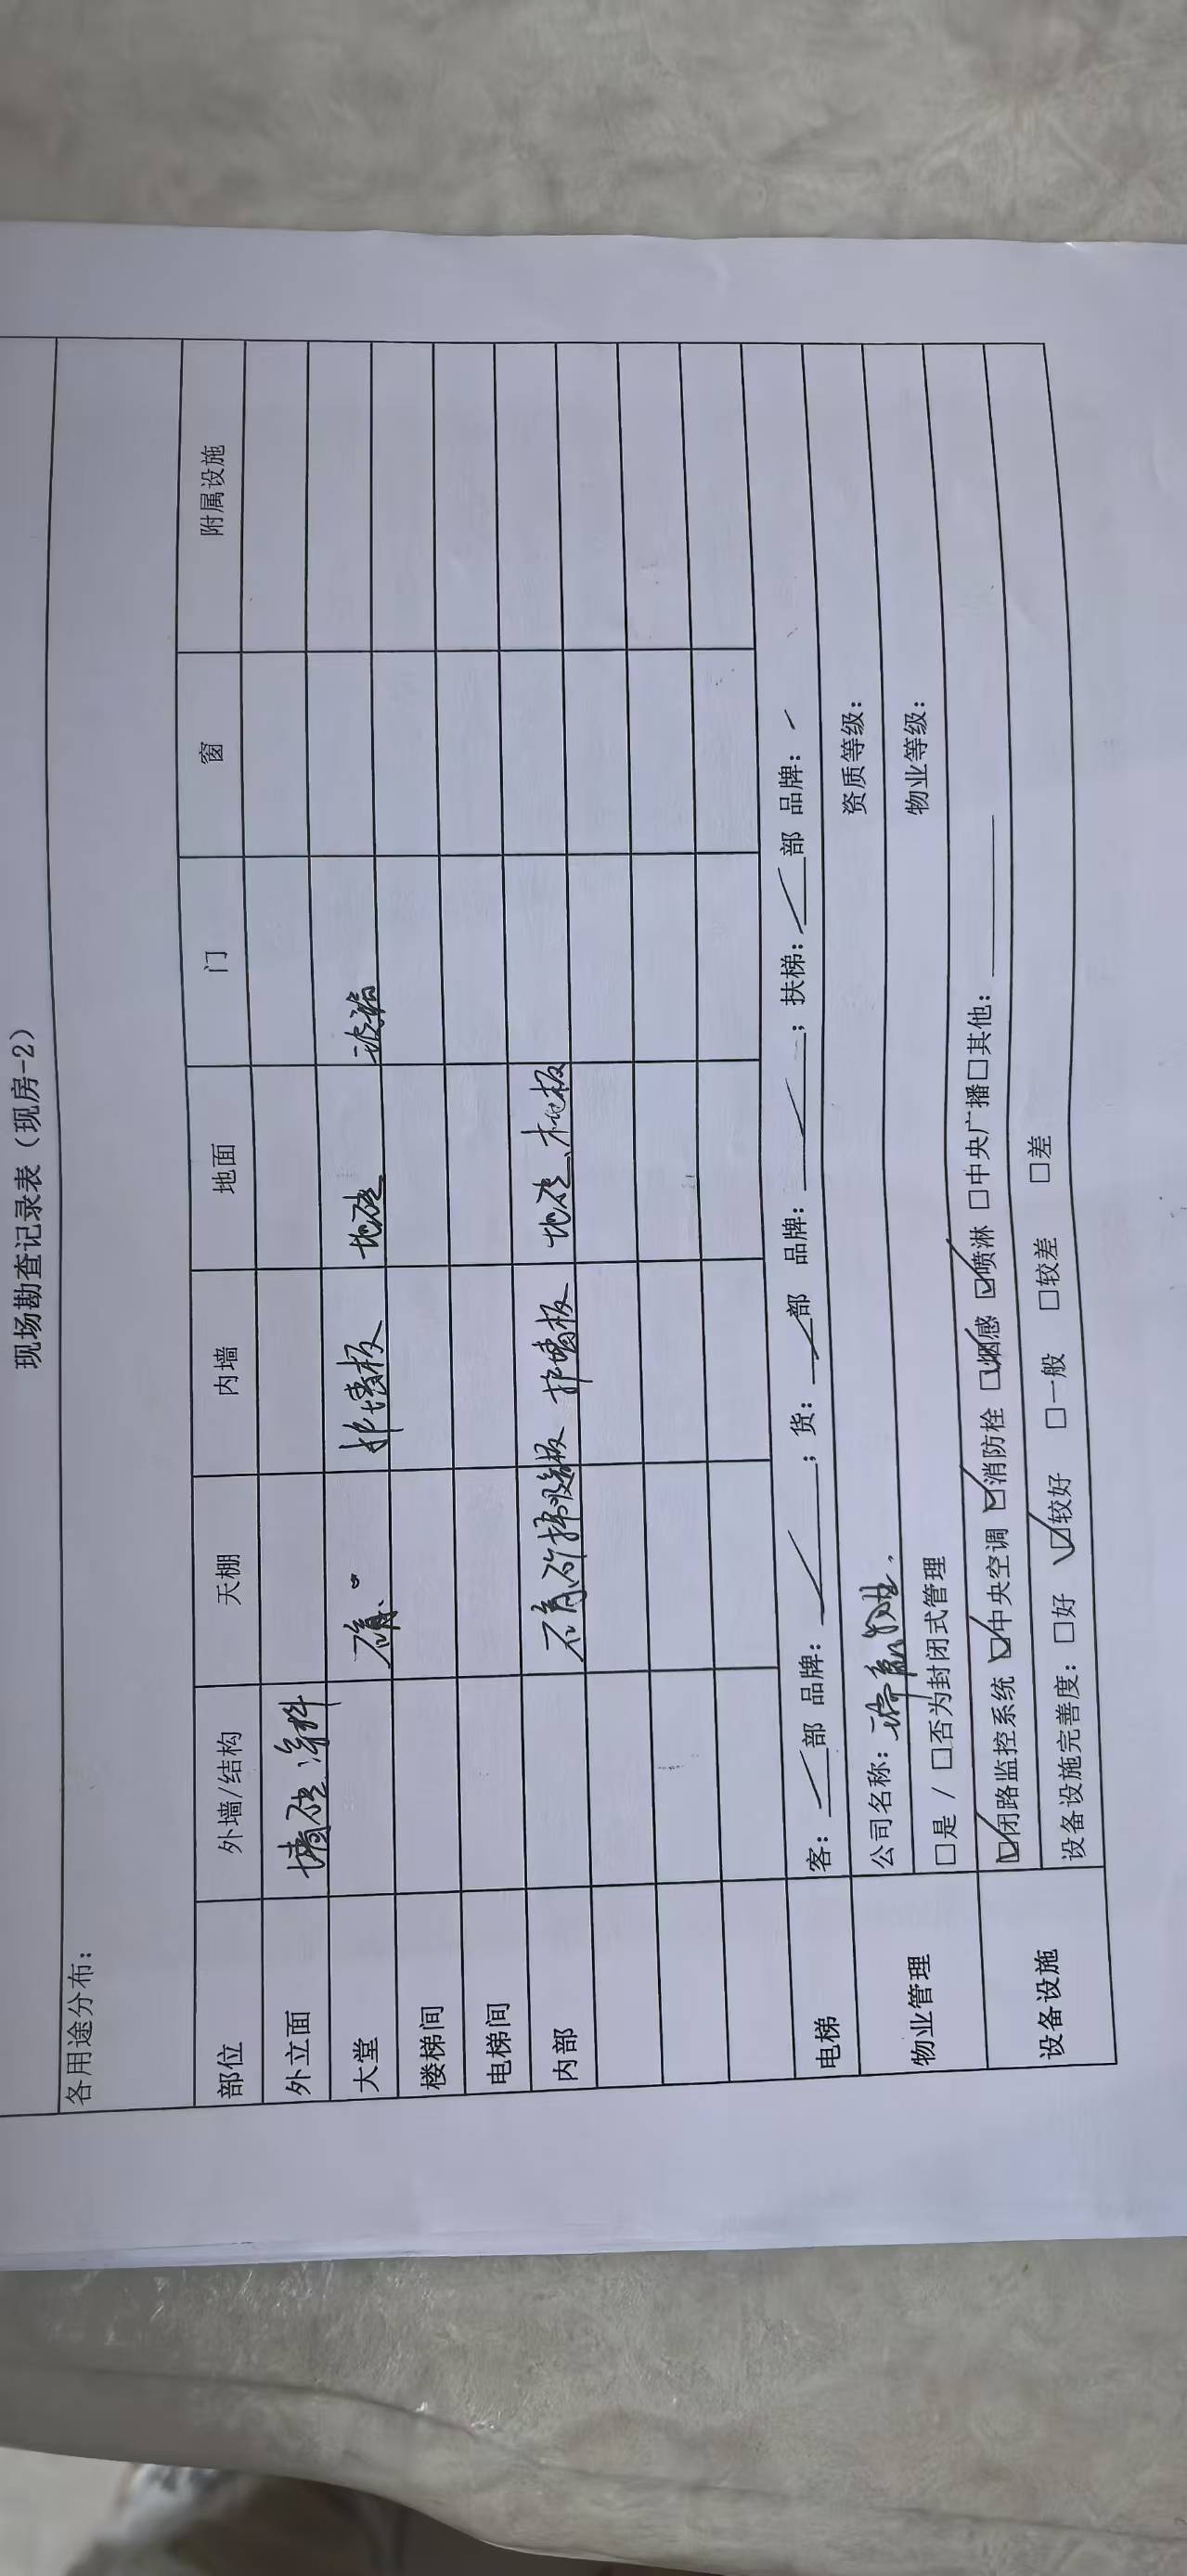 现场勘查记录表（现房-2）
各用途分布：
部位 外墙/结构 天棚 内墙 地面 门 窗 附属设施
外立面 墙砖 涂料
大堂 石膏 护墙板 地砖 玻璃
楼梯间
电梯间
内部 石膏 护墙板 地砖、木地板
电梯 客：部 品牌：；货：部 品牌：；扶梯：部 品牌：
物业管理 公司名称： 资质等级：
□是 / □否为封闭式管理 物业等级：
设备设施 ☑闭路监控系统 ☑中央空调 ☑消防栓 ☑烟感 ☑喷淋 □中央广播□其他：
设备设施完善度：□好 ☑较好 □一般 □较差 □差